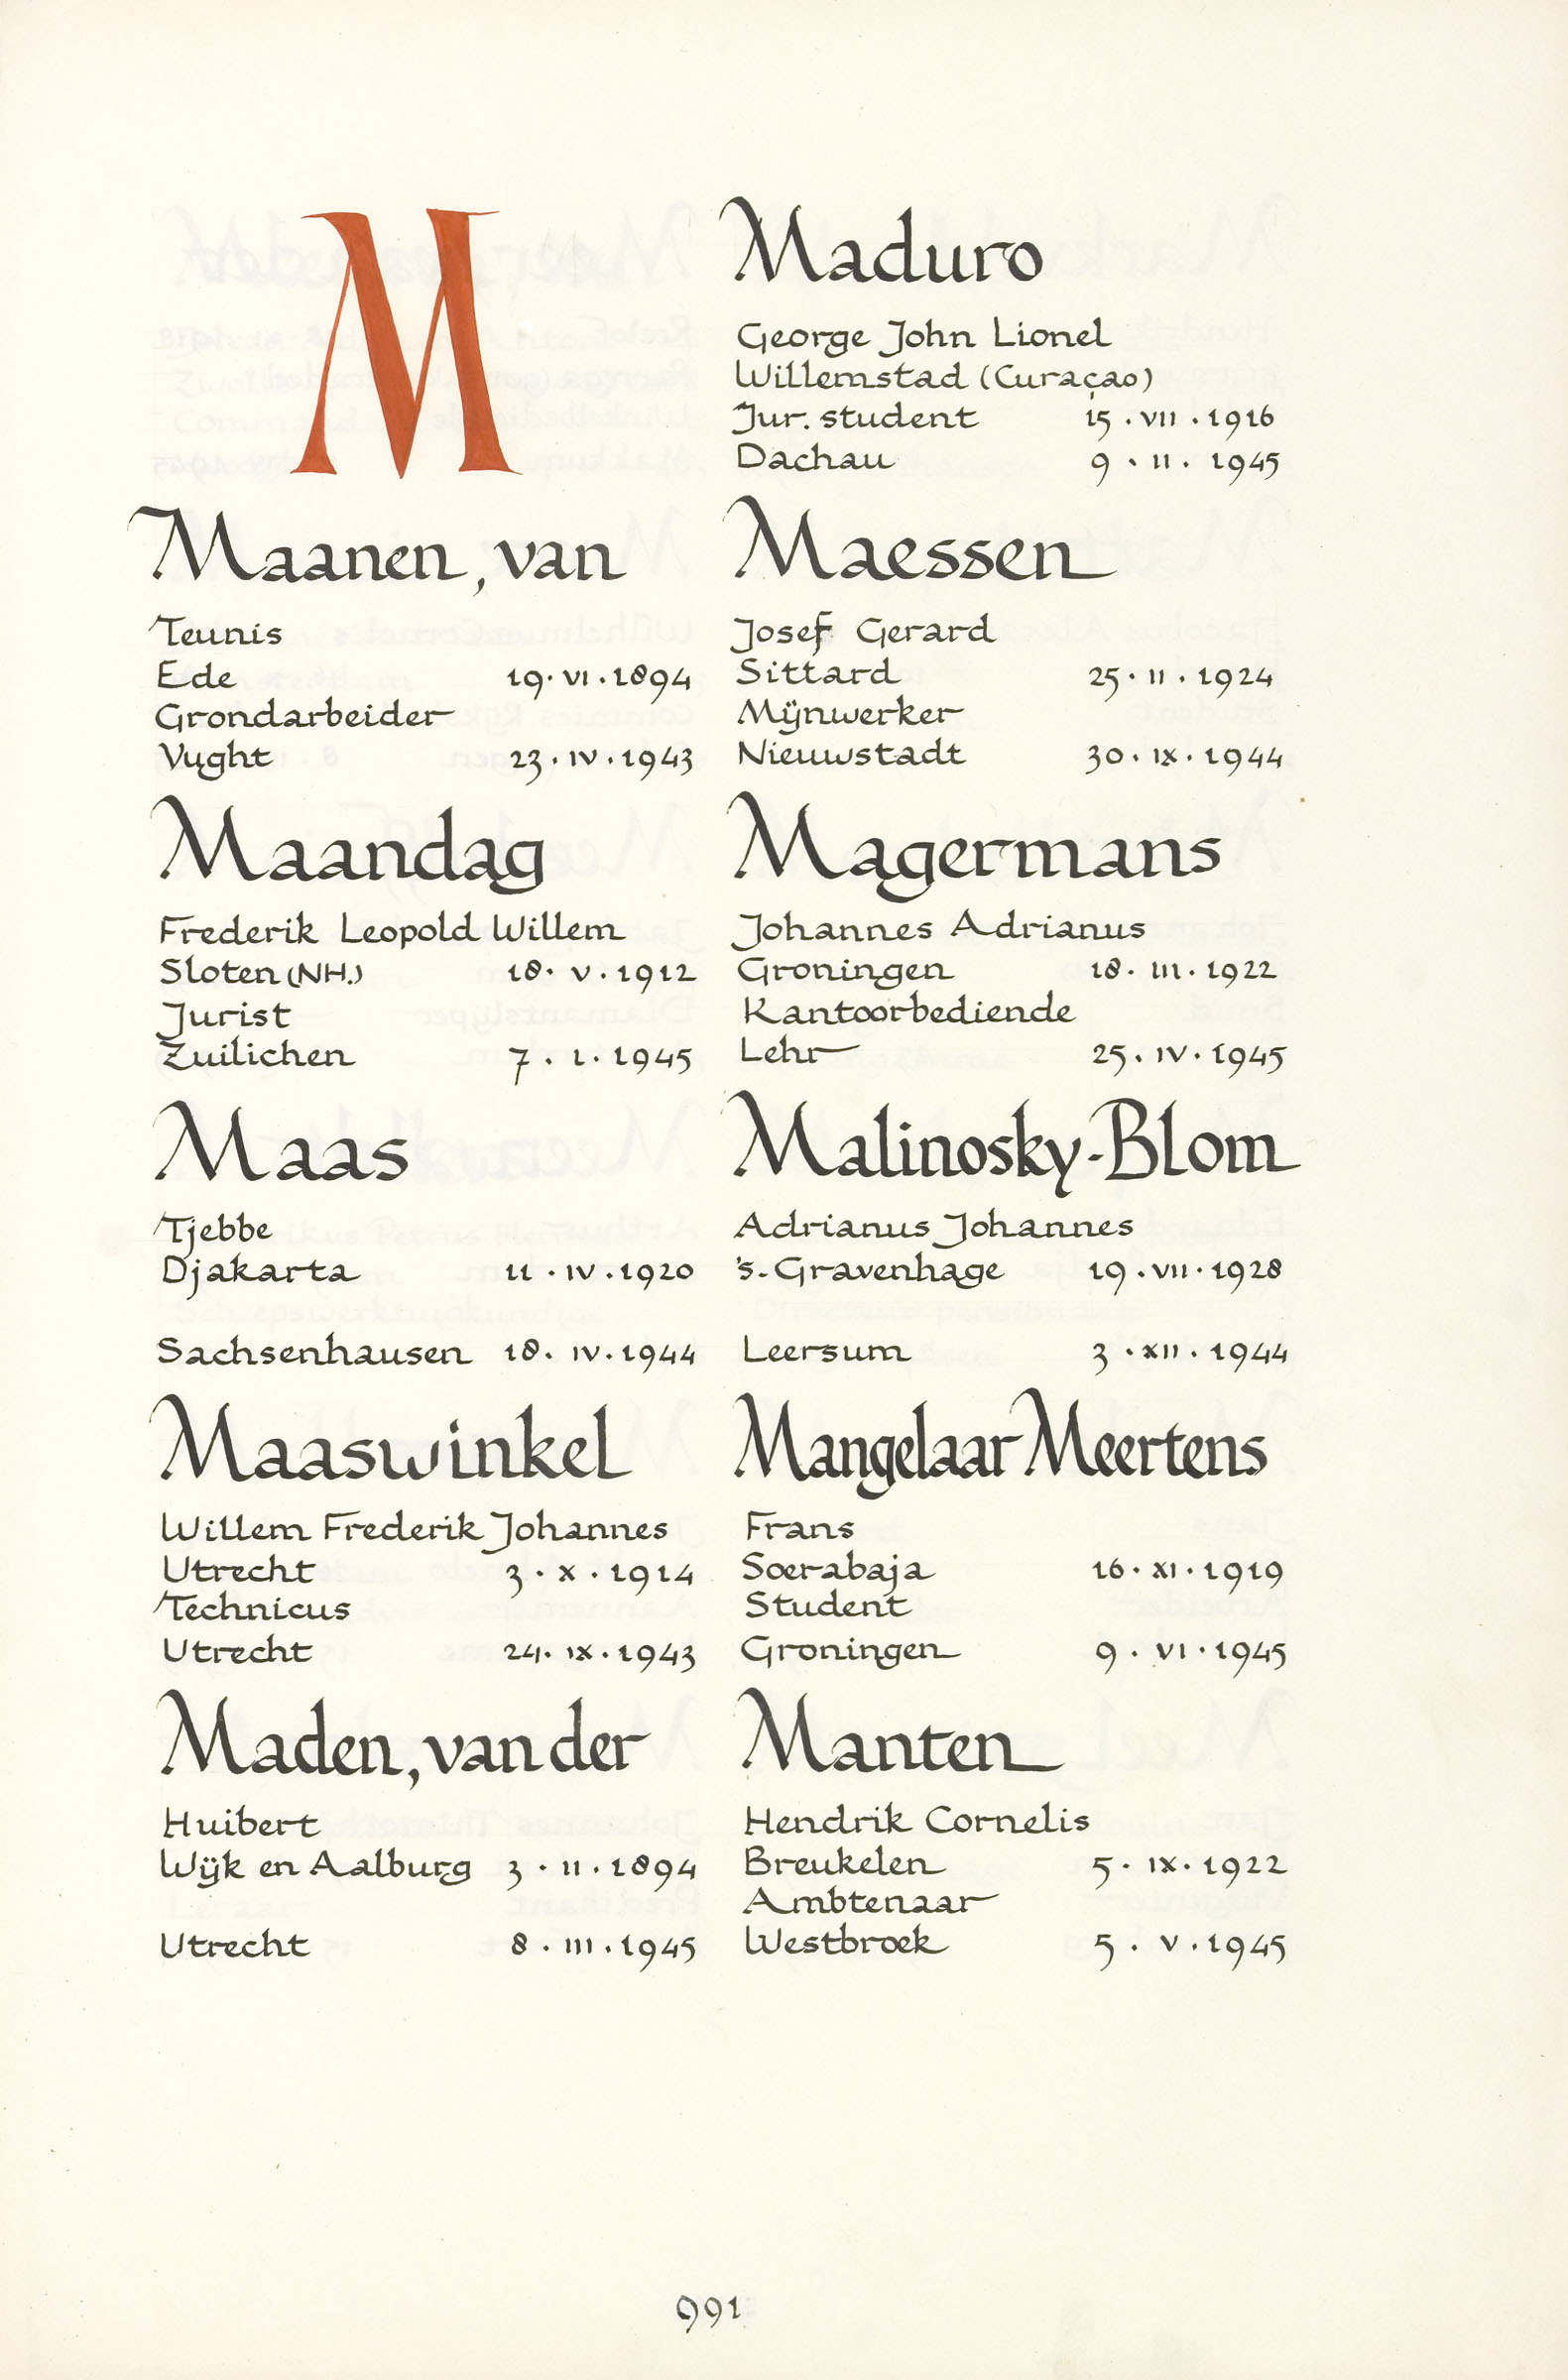 M
Maanen, van
Teunis
Ede 19·VI·1894
Grondarbeider
Vught 23·IV·1943
Maandag
Frederik Leopold Willem
Sloten (NH.) 18·V·1912
Jurist
Zuilichen 7·I·1945
Maas
Tjebbe
Djakarta 11·IV·1920
Sachsenhausen 18·IV·1944
Maaswinkel
Willem Frederik Johannes
Utrecht 3·X·1914
Technicus
Utrecht 24·IX·1943
Maden, van der
Huibert
Wijk en Aalburg 3·II·1894
Utrecht 8·III·1945
Maduro
George John Lionel
Willemstad (Curaçao)
Jur. student 15·VII·1916
Dachau 9·II·1945
Maessen
Josef Gerard
Sittard 25·II·1924
Mijnwerker
Nieuwstadt 30·IX·1944
Magermans
Johannes Adrianus
Groningen 18·III·1922
Kantoorbediende
Lehr 25·IV·1945
Malinosky-Blom
Adrianus Johannes
's-Gravenhage 19·VII·1928
Leersum 3·XII·1944
Mangelaar Meertens
Frans
Soerabaja 16·XI·1919
Student
Groningen 9·VI·1945
Manten
Hendrik Cornelis
Breukelen 5·IX·1922
Ambtenaar
Westbroek 5·V·1945
991